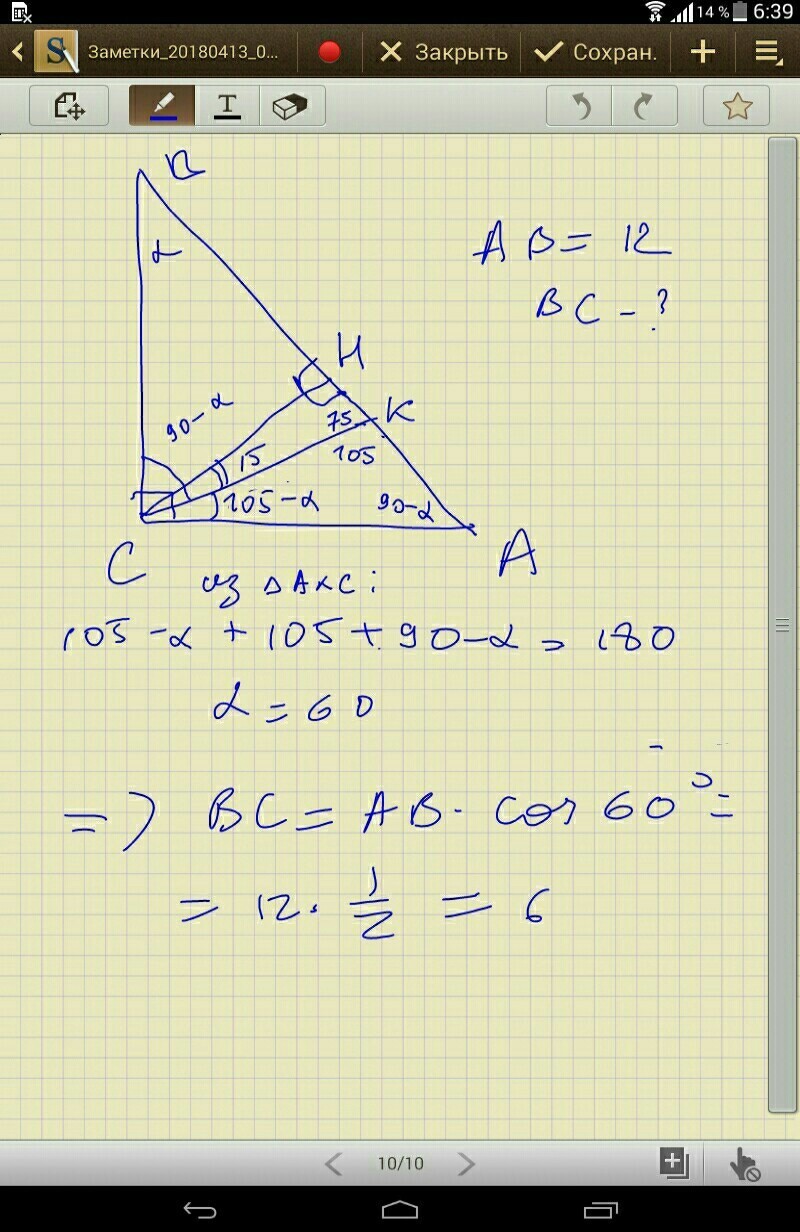 14 % 6:39
Заметки_20180413_0... Закрыть Сохран.
T
B
α
AB = 12
BC - ?
H
K
90-α
75
15
105
105-α
90-α
C
A
из △AKC:
105-α + 105 + 90-α = 180
α = 60
=> BC = AB · cos 60° =
= 12 · 1/2 = 6
10/10